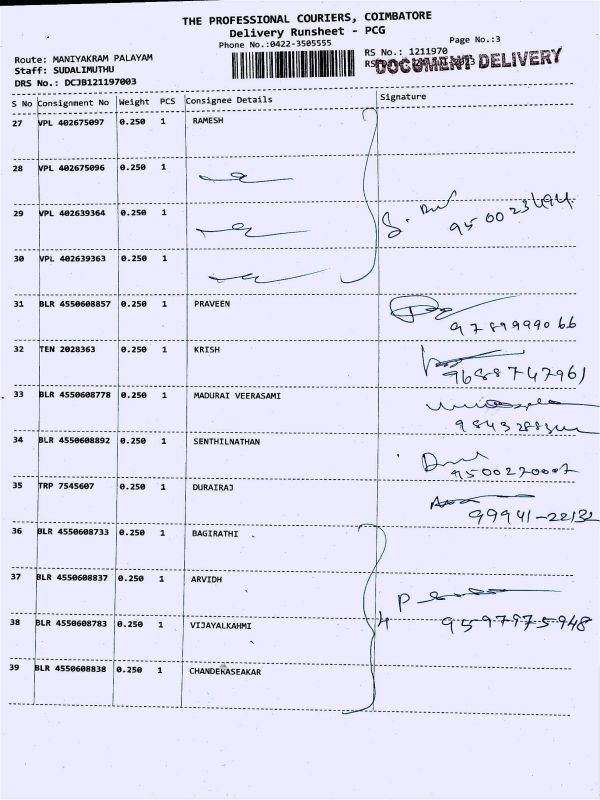 THE PROFESSIONAL COURIERS, COIMBATORE
Delivery Runsheet - PCG
Phone No.:0422-3505555
Page No.:3
Route: MANIYAKRAM PALAYAM
RS No.: 1211970
Staff: SUDALIMUTHU
DOCUMENT DELIVERY
DRS No.: DCJB121197003
S No Consignment No Weight PCS Consignee Details Signature
27 VPL 402675097 0.250 1 RAMESH
28 VPL 402675096 0.250 1
29 VPL 402639364 0.250 1
30 VPL 402639363 0.250 1
31 BLR 4550608857 0.250 1 PRAVEEN
9789999066
32 TEN 2028363 0.250 1 KRISH
9688747961
33 BLR 4550608778 0.250 1 MADURAI VEERASAMI
34 BLR 4550608892 0.250 1 SENTHILNATHAN
35 TRP 7545607 0.250 1 DURAIRAJ
99941-22132
36 BLR 4550608733 0.250 1 BAGIRATHI
37 BLR 4550608837 0.250 1 ARVIDH
38 BLR 4550608783 0.250 1 VIJAYALKAHMI
4 9597975948
39 BLR 4550608838 0.250 1 CHANDERASEAKAR